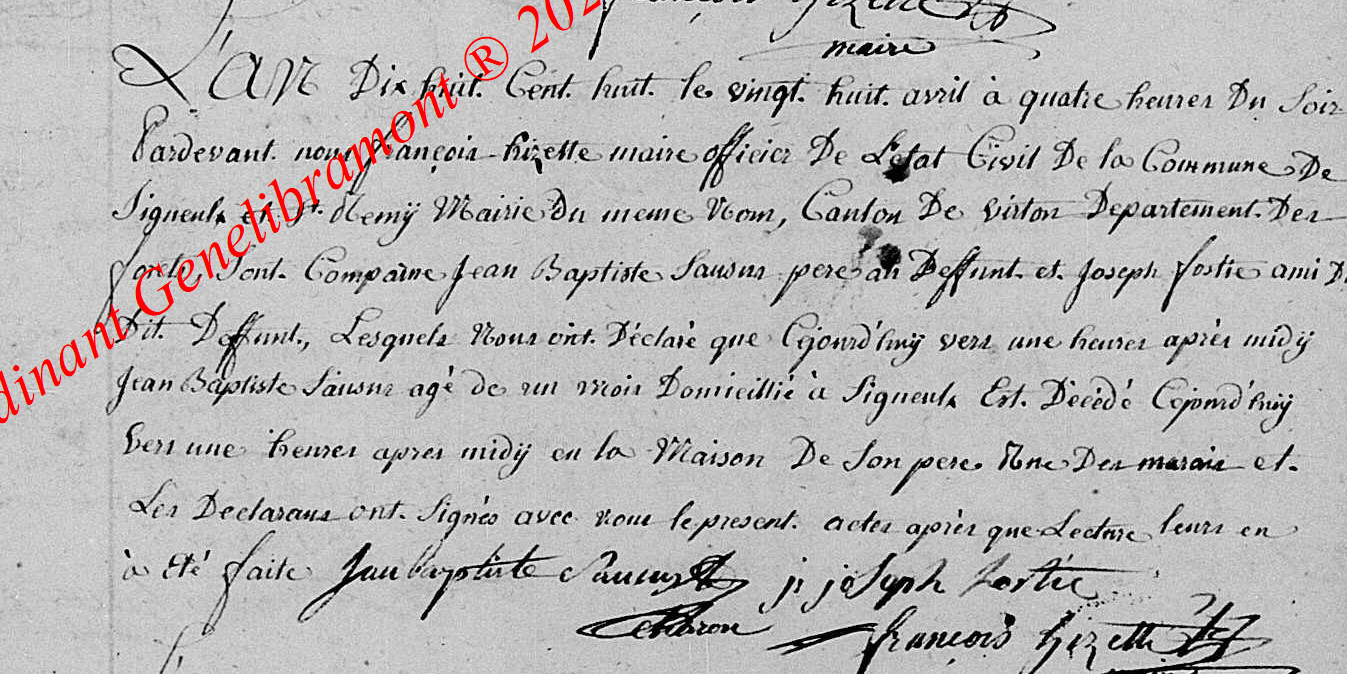 françois hizette
maire
L'AN Dix huit. Cent. huit. le vingt. huit. avril à quatre heures Du Soir
Pardevant. nous françois hizette maire officier De L'etat Civil De la Commune De
Signeulx et St. Remÿ Mairie Du meme Nom, Canton De virton Departement. Des
forets, Sont. Comparue Jean Baptiste Sausus pere au Deffunt. et. Joseph fostie ami Du
Dit. Deffunt., Lesquels Nous ont. Déclaré que Cejourd'huÿ vers une heures après midÿ
Jean Baptiste Sausus agé de un mois Domicillié à Signeulx Est. Décédé Cejourd'huÿ
vers une heures apres midÿ en la Maison De Son pere Rue Des marais et.
Les Declarans ont. Signés avec nous le present. actes après que Lecture leurs en
à été faite Jean baptiste j joseph fostié
françois hizette
dinant Genelibramont ® 202